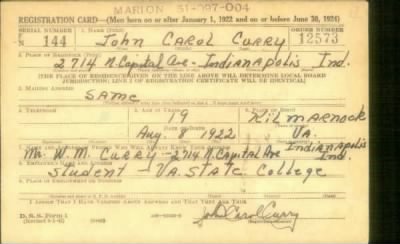 MARION 51-097-004
REGISTRATION CARD—(Men born on or after January 1, 1922 and on or before June 30, 1924)
SERIAL NUMBER 1. NAME (Print) ORDER NUMBER
N 144 JOHN CAROL CURRY 12573
2. PLACE OF RESIDENCE (Print)
2714 N. Capital Ave - Indianapolis Ind.
[THE PLACE OF RESIDENCE GIVEN ON THE LINE ABOVE WILL DETERMINE LOCAL BOARD
JURISDICTION; LINE 2 OF REGISTRATION CERTIFICATE WILL BE IDENTICAL]
3. MAILING ADDRESS
SAME
4. TELEPHONE 5. AGE IN YEARS 6. PLACE OF BIRTH
19 Kilmarnock
DATE OF BIRTH
Aug. 1922 VA.
7. NAME AND ADDRESS OF PERSON WHO WILL ALWAYS KNOW YOUR ADDRESS
Indianapolis
Mr. W. M. CURRY - 2714 N. Capital Ave Ind.
Student - VA. STATE College
9. PLACE OF EMPLOYMENT OR BUSINESS
I AFFIRM THAT I HAVE VERIFIED ABOVE ANSWERS AND THAT THEY ARE TRUE.
D. S. S. Form 1
John Carol Curry